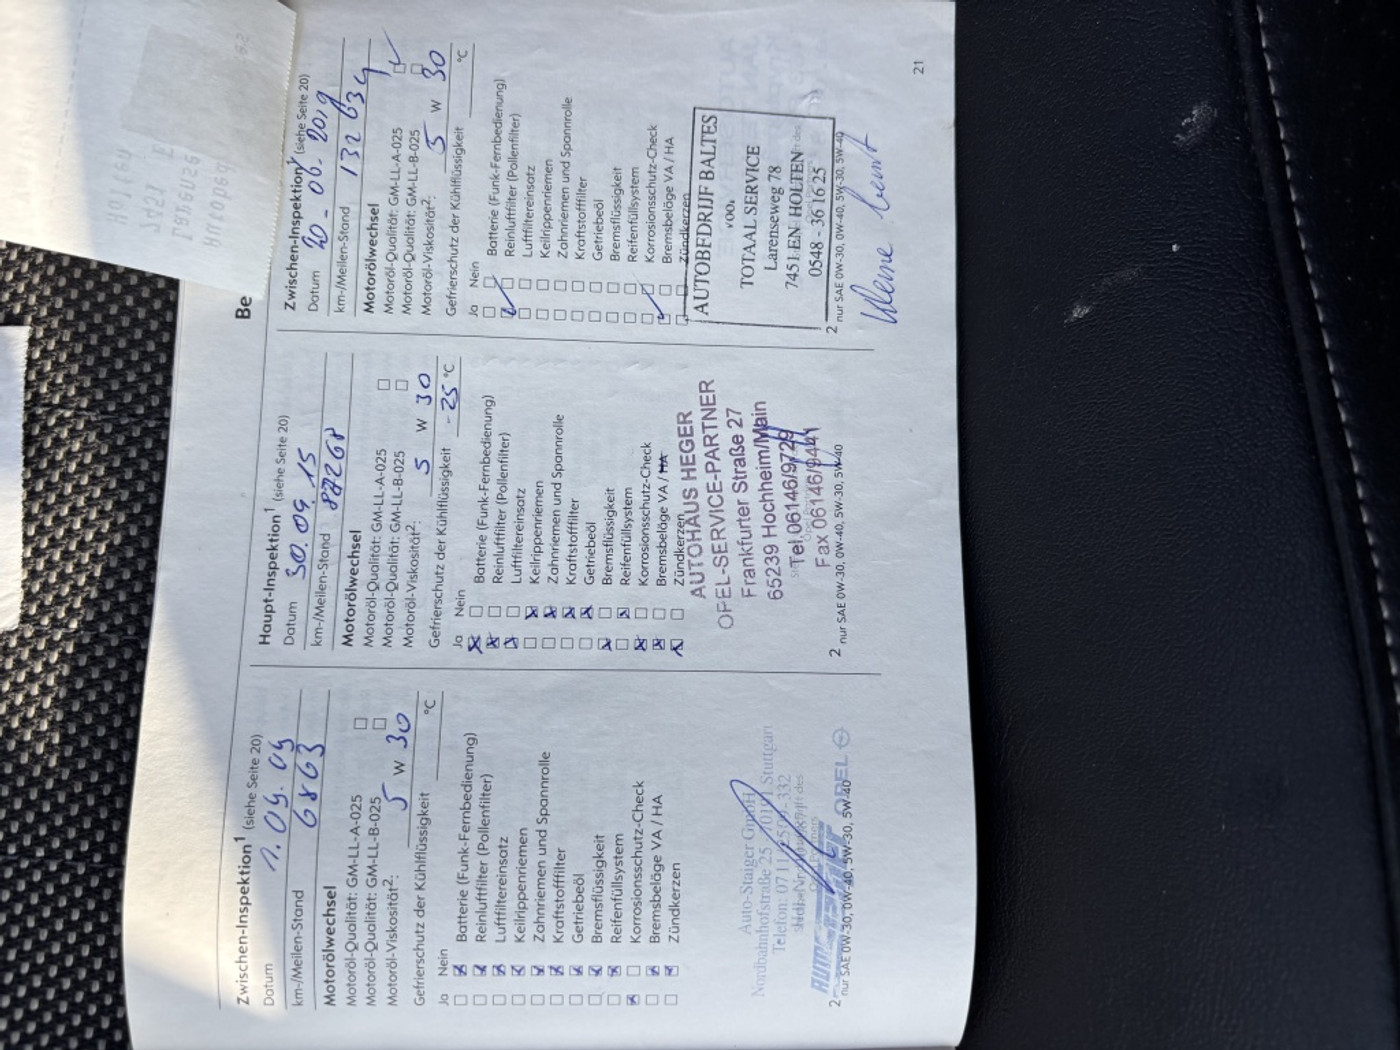 Be
Zwischen-Inspektion1 (siehe Seite 20)
Datum 1.09.09
km-/Meilen-Stand 6863
Motorölwechsel
Motoröl-Qualität: GM-LL-A-025 ☐
Motoröl-Qualität: GM-LL-B-025 ☐
Motoröl-Viskosität2: 5 W 30
Gefrierschutz der Kühlflüssigkeit °C
Ja Nein
☐ ☒ Batterie (Funk-Fernbedienung)
☐ ☒ Reinluftfilter (Pollenfilter)
☐ ☒ Luftfiltereinsatz
☐ ☒ Keilrippenriemen
☐ ☒ Zahnriemen und Spannrolle
☐ ☒ Kraftstofffilter
☐ ☒ Getriebeöl
☐ ☒ Bremsflüssigkeit
☐ ☒ Reifenfüllsystem
☒ ☐ Korrosionsschutz-Check
☐ ☒ Bremsbeläge VA / HA
☐ ☒ Zündkerzen
Auto-Staiger GmbH
Nordbahnhofstraße 25 70191 Stuttgart
Telefon: 0711
OPEL
2 nur SAE 0W-30, 0W-40, 5W-30, 5W-40
Haupt-Inspektion1 (siehe Seite 20)
Datum 30.09.15
km-/Meilen-Stand 87268
Motorölwechsel
Motoröl-Qualität: GM-LL-A-025 ☐
Motoröl-Qualität: GM-LL-B-025 ☐
Motoröl-Viskosität2: 5 W 30
Gefrierschutz der Kühlflüssigkeit -25 °C
Ja Nein
☒ ☐ Batterie (Funk-Fernbedienung)
☒ ☐ Reinluftfilter (Pollenfilter)
☒ ☐ Luftfiltereinsatz
☐ ☒ Keilrippenriemen
☐ ☒ Zahnriemen und Spannrolle
☐ ☒ Kraftstofffilter
☐ ☒ Getriebeöl
☒ ☐ Bremsflüssigkeit
☐ ☒ Reifenfüllsystem
☒ ☐ Korrosionsschutz-Check
☒ ☐ Bremsbeläge VA / HA
☒ ☐ Zündkerzen
AUTOHAUS HEGER
OPEL-SERVICE-PARTNER
Frankfurter Straße 27
65239 Hochheim/Main
Tel. 06146/9729
Fax 06146/9441
2 nur SAE 0W-30, 0W-40, 5W-30, 5W-40
Zwischen-Inspektion1 (siehe Seite 20)
Datum 20-06-2019
km-/Meilen-Stand 132634
Motorölwechsel
Motoröl-Qualität: GM-LL-A-025 ☑
Motoröl-Qualität: GM-LL-B-025 ☐
Motoröl-Viskosität2: 5 W 30
Gefrierschutz der Kühlflüssigkeit °C
Ja Nein
☐ ☐ Batterie (Funk-Fernbedienung)
☑ ☐ Reinluftfilter (Pollenfilter)
☐ ☐ Luftfiltereinsatz
☐ ☐ Keilrippenriemen
☐ ☐ Zahnriemen und Spannrolle
☐ ☐ Kraftstofffilter
☐ ☐ Getriebeöl
☐ ☐ Bremsflüssigkeit
☐ ☐ Reifenfüllsystem
☐ ☐ Korrosionsschutz-Check
☑ ☐ Bremsbeläge VA / HA
☐ ☐ Zündkerzen
AUTOBEDRIJF BALTES
voo.
TOTAAL SERVICE
Larenseweg 78
7451 EN HOLTEN
0548 - 36 16 25
2 nur SAE 0W-30, 0W-40, 5W-30, 5W-40
Kleine beurt
21